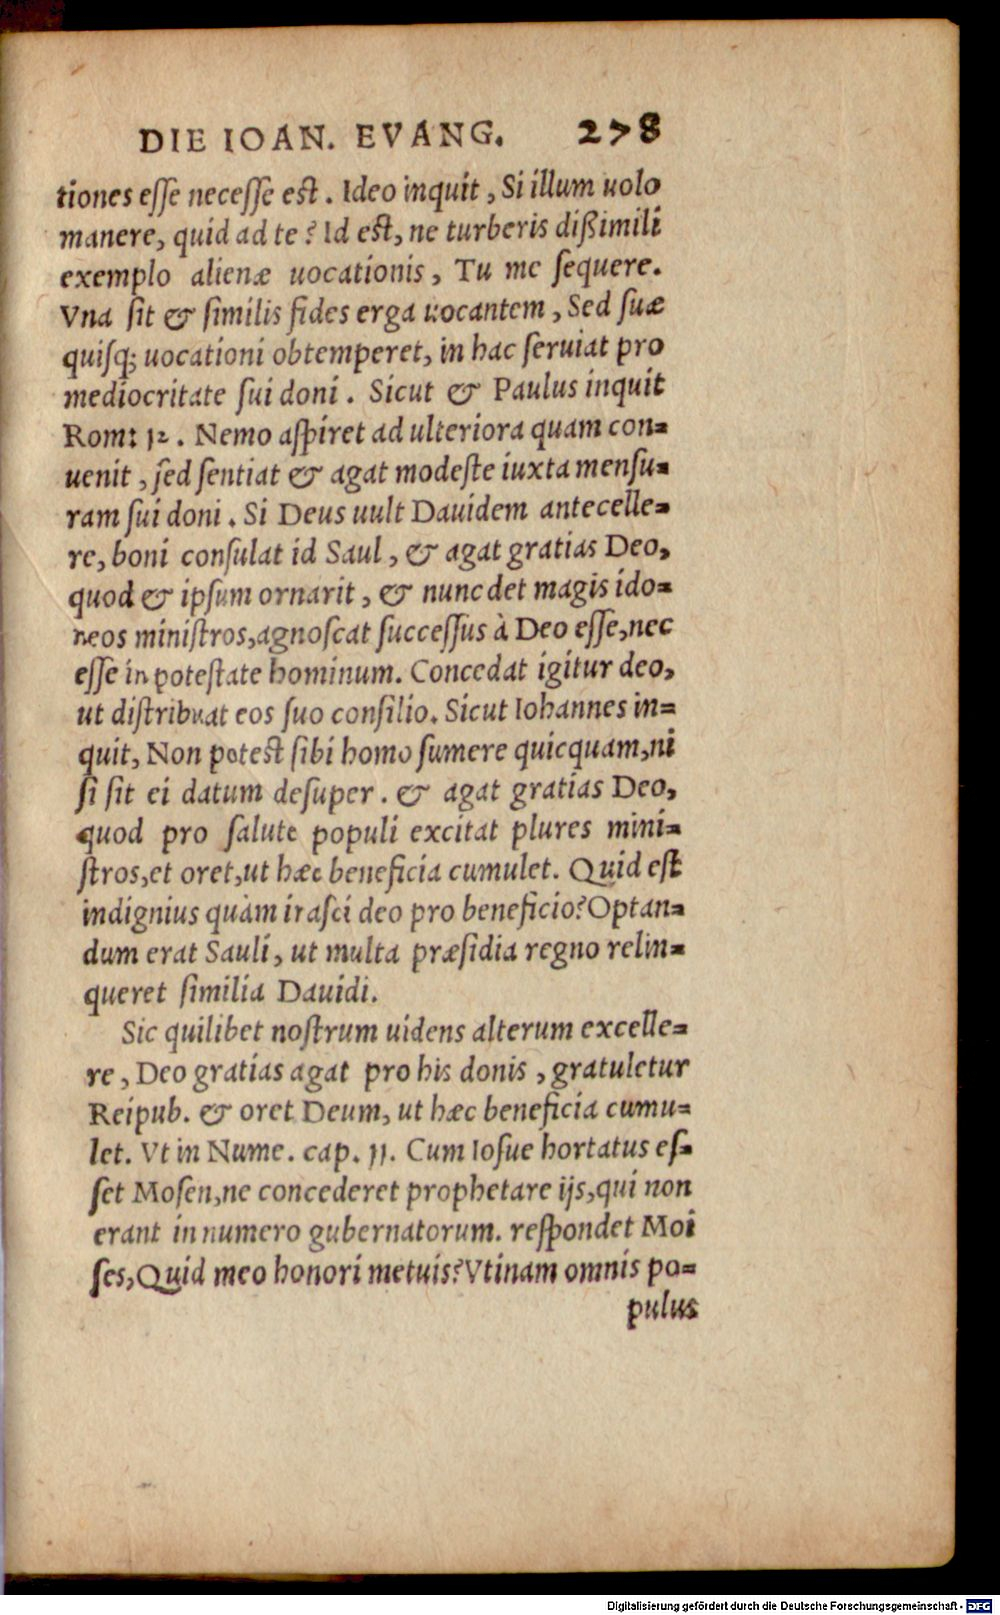 DIE IOAN. EVANG. 278
tiones eſſe neceſſe eſt. Ideo inquit, Si illum uolo
manere, quid ad te? Id eſt, ne turberis dißimili
exemplo alienæ uocationis, Tu me ſequere.
Vna ſit & ſimilis fides erga uocantem, Sed ſuæ
quiſq; uocationi obtemperet, in hac ſeruiat pro
mediocritate ſui doni. Sicut & Paulus inquit
Rom: 12. Nemo aſpiret ad ulteriora quam con=
uenit, ſed ſentiat & agat modeſte iuxta menſu=
ram ſui doni. Si Deus uult Dauidem antecelle=
re, boni conſulat id Saul, & agat gratias Deo,
quod & ipſum ornarit, & nunc det magis ido=
neos miniſtros, agnoſcat ſucceſſus à Deo eſſe, nec
eſſe in poteſtate hominum. Concedat igitur deo,
ut diſtribuat eos ſuo conſilio. Sicut Iohannes in=
quit, Non poteſt ſibi homo ſumere quicquam, ni
ſi ſit ei datum deſuper. & agat gratias Deo,
quod pro ſalute populi excitat plures mini=
ſtros, et oret, ut hæc beneficia cumulet. Quid eſt
indignius quàm iraſci deo pro beneficio? Optan=
dum erat Sauli, ut multa præſidia regno relin=
queret ſimilia Dauidi.
Sic quilibet noſtrum uidens alterum excelle=
re, Deo gratias agat pro his donis, gratuletur
Reipub. & oret Deum, ut hæc beneficia cumu=
let. Vt in Nume. cap. 11. Cum Ioſue hortatus eſ=
ſet Moſen, ne concederet prophetare ijs, qui non
erant in numero gubernatorum. reſpondet Moi
ſes, Quid meo honori metuis? Vtinam omnis po=
pulus
Digitalisierung gefördert durch die Deutsche Forschungsgemeinschaft - DFG